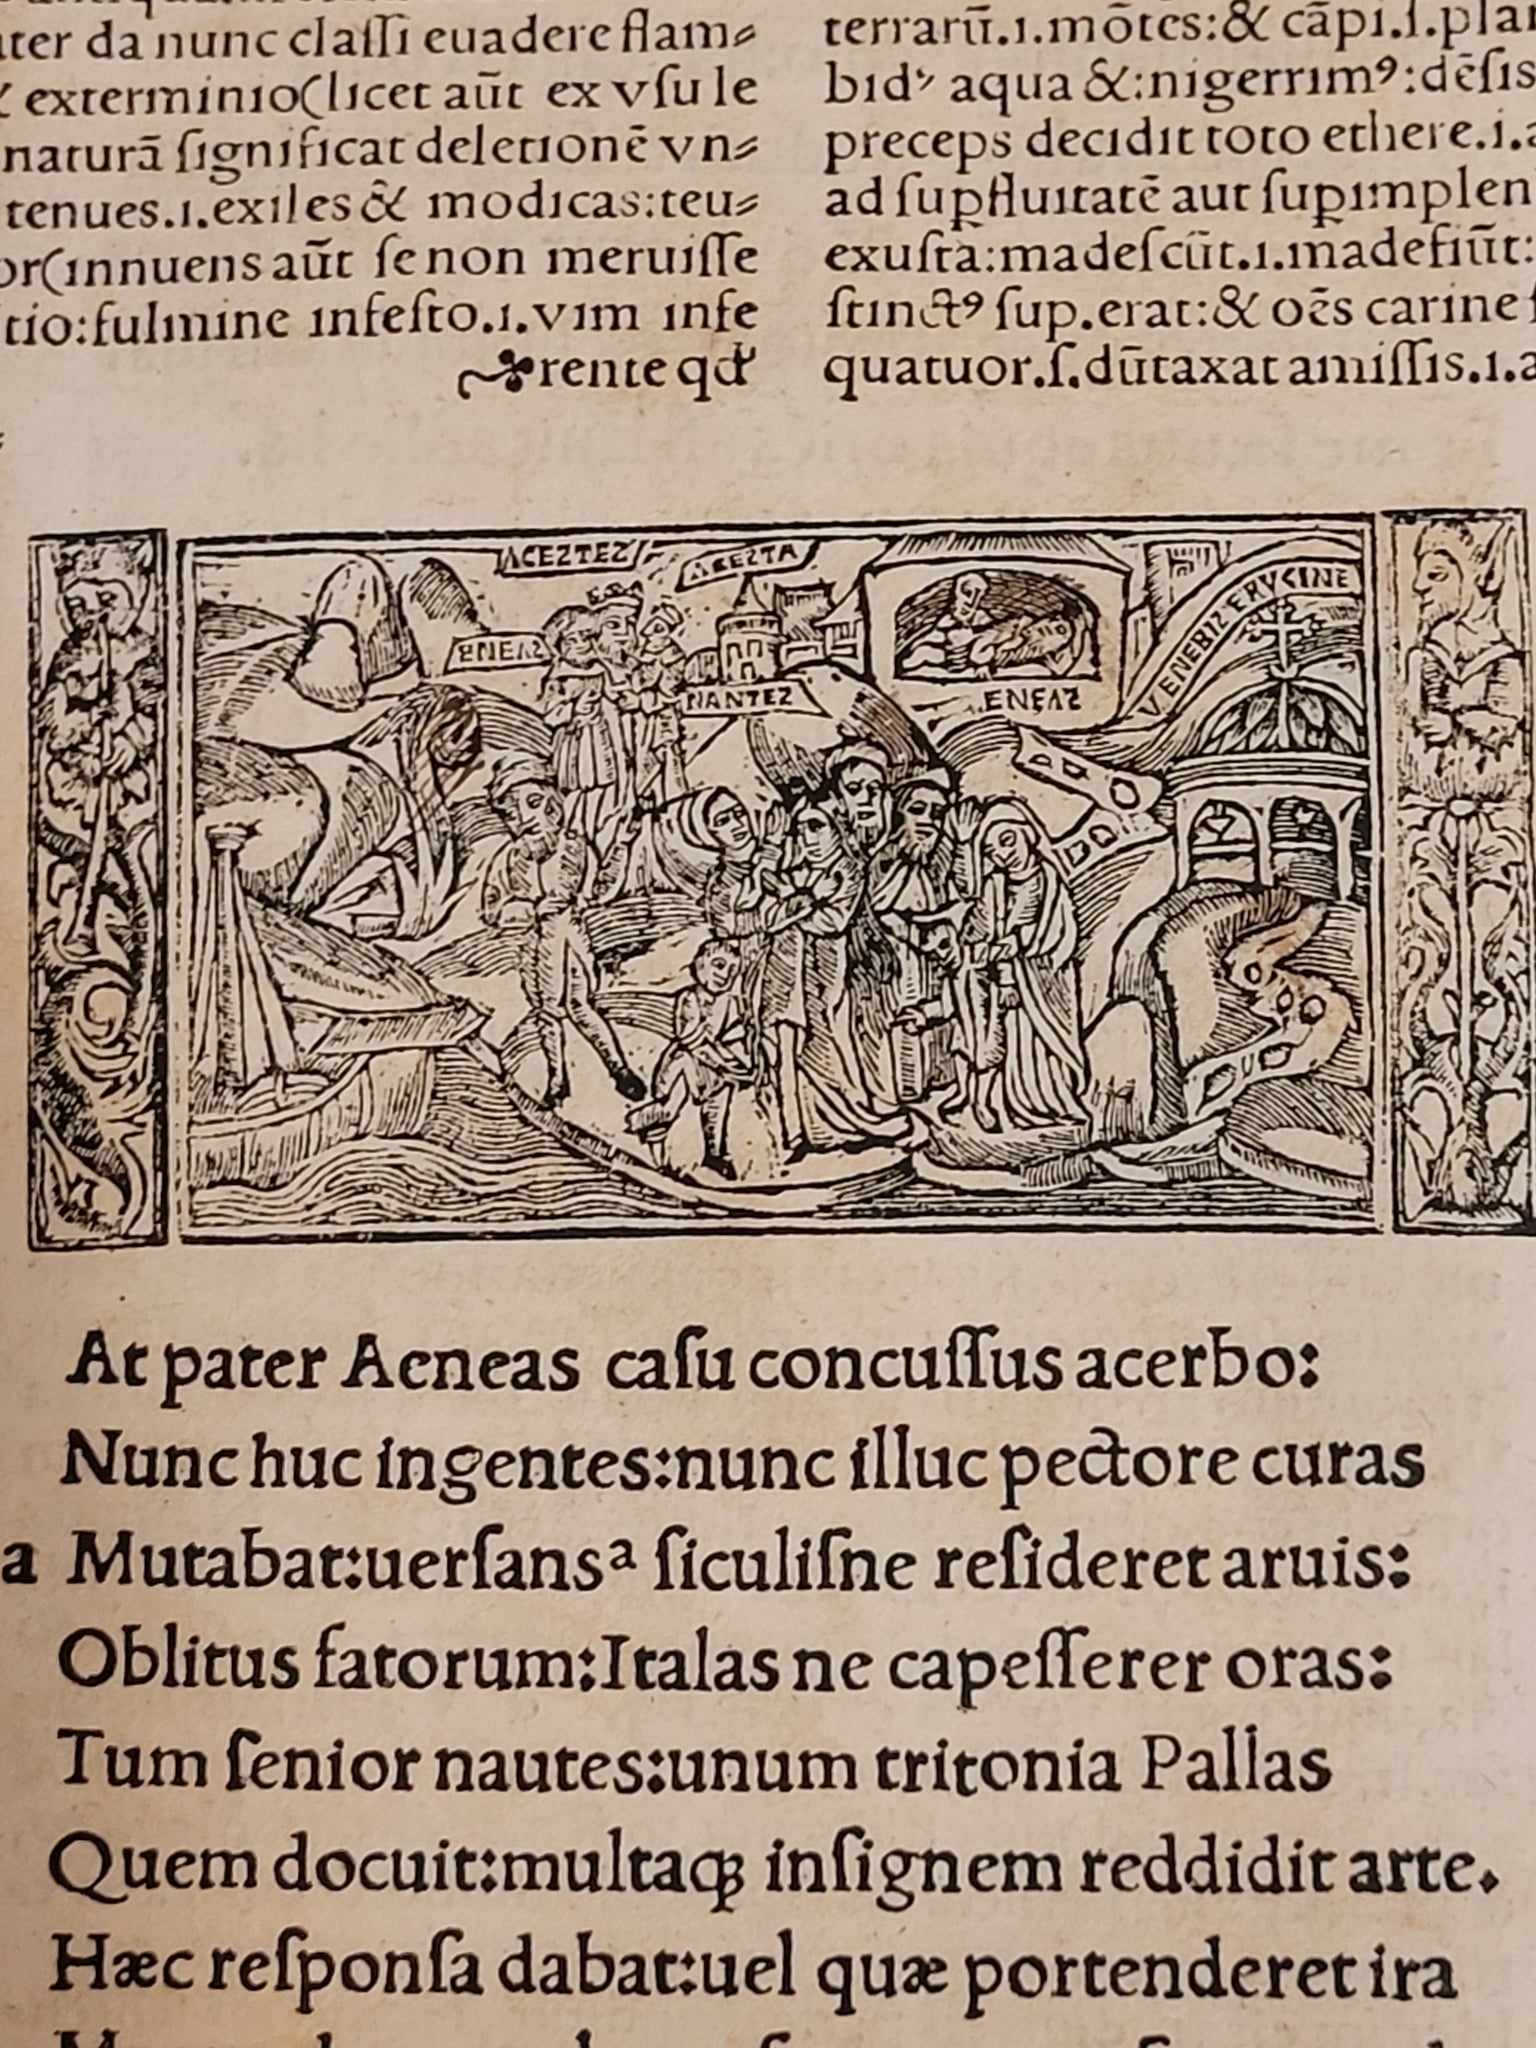 ter da nunc claſſi euadere flam⸗
exterminio(licet aūt ex vſu le
naturā ſignificat deletionē vn⸗
tenues.i.exiles & modicas:teu⸗
or(innuens aūt ſe non meruiſſe
tio:fulmine infeſto.i.vim infe
rente qd
terrarū.i.mōtes:& cāpi.ſ.plan
bidꝰ aqua &:nigerrimꝰ:dēſis
preceps decidit toto ethere.i.a
ad ſuꝑfluitatē aut ſuꝑimplen
exuſta:madeſcūt.i.madefiūt:
ſtinctꝰ ſup.erat:& oēs carine ſ
quatuor.ſ.dūtaxat amiſſis.i.a
ACEZTEZ
ACEZTA
ENEAZ
NANTEZ
ENEAZ
VENERIZ ERVCINE
At pater Aeneas caſu concuſſus acerbo:
Nunc huc ingentes:nunc illuc pectore curas
a Mutabat:uerſansᵃ ſiculiſne reſideret aruis:
Oblitus fatorum:Italas ne capeſſerer oras:
Tum ſenior nautes:unum tritonia Pallas
Quem docuit:multaqꝫ inſignem reddidit arte.
Hæc reſponſa dabat:uel quæ portenderet ira